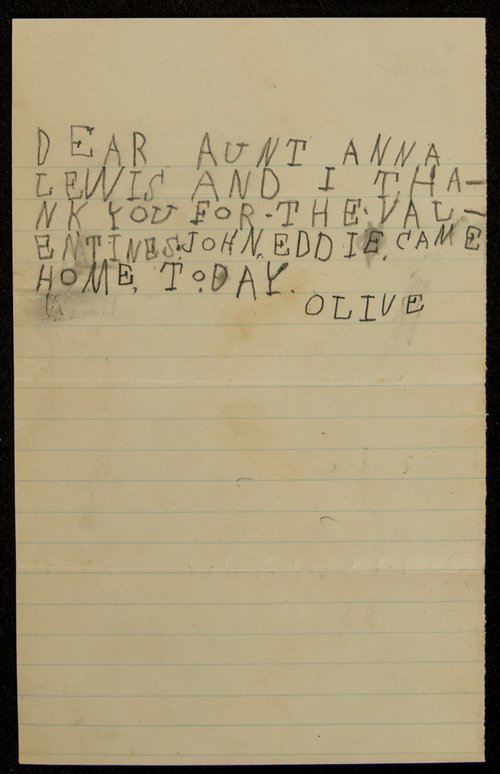 DEAR AUNT ANNA
LEWIS AND I THA-
NK YOU FOR-THE VAL-
ENTINES. JOHN, EDDIE, CAME
HOME, TODAY.
OLIVE